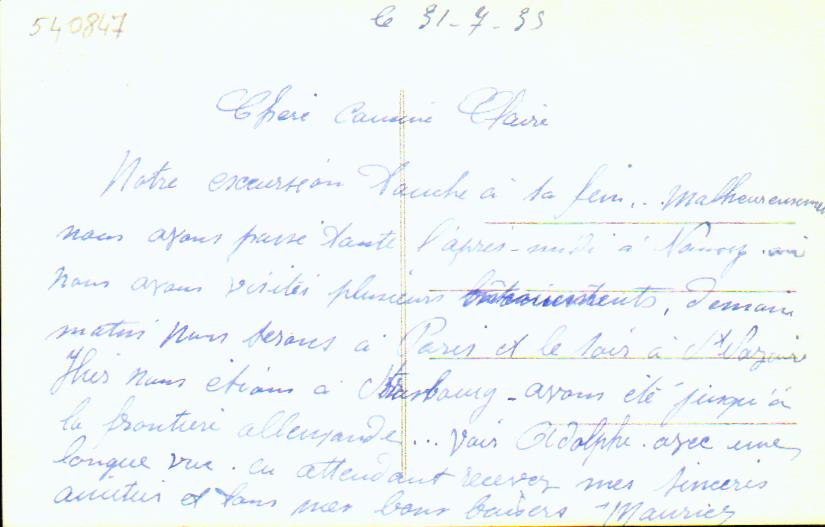 540847
le 31-7-39
Chère cousine Claire
Notre excursion touche à sa fin.. Malheureusement
nous avons passé toute l'après-midi à Nancy où
nous avons visités plusieurs bâtiments, demain
matin nous serons à Paris et le soir à St Nazaire
Hier nous étions à Strasbourg - avons été jusqu'à
la frontière allemande... voir Adolphe avec une
longue vue. en attendant recevez mes sincères
amitiés et tous mes bons baisers Maurice